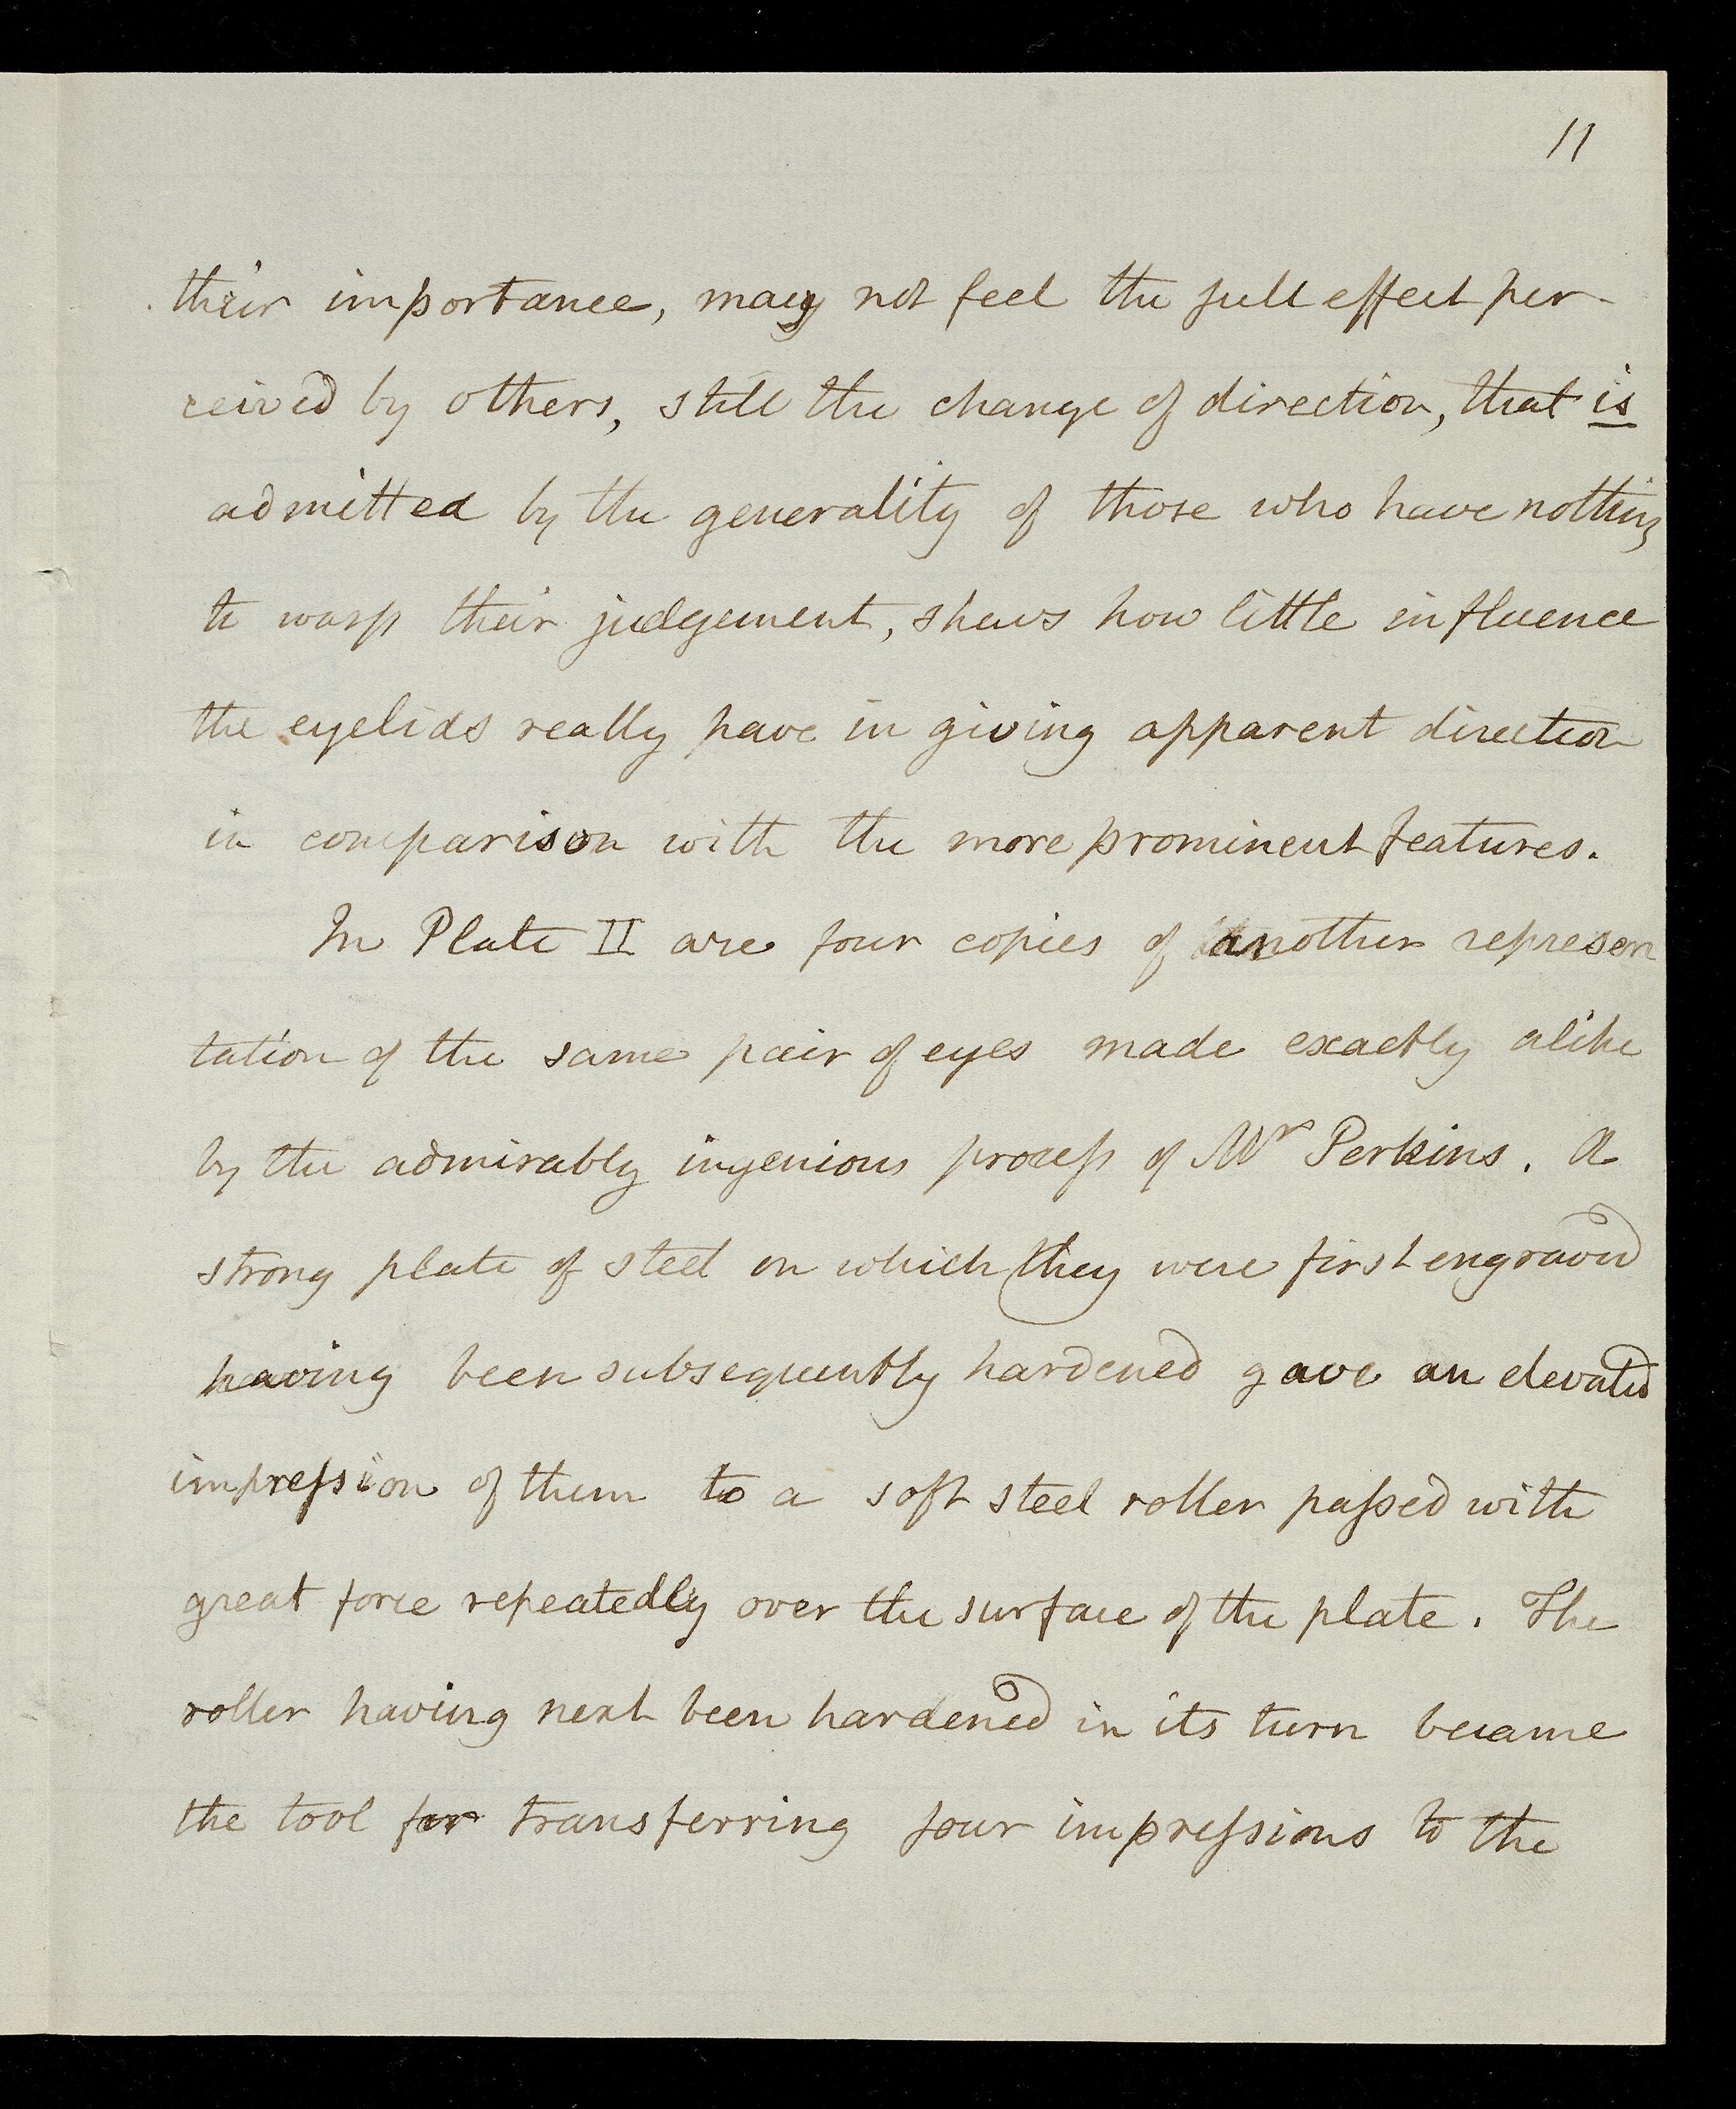 11
their importance, may not feel the full effect per-
ceived by others, still the change of direction, that is
admitted by the generality of those who have nothing
to warp their judgement, shews how little influence
the eyelids really have in giving apparent direction
in comparison with the more prominent features.
In Plate II are four copies of another represen
tation of the same pair of eyes made exactly alike
by the admirably ingenious process of Mr Perkins. A
strong plate of steel on which they were first engraved
having been subsequently hardened gave an elevated
impression of them to a soft steel roller passed with
great force repeatedly over the surface of the plate. The
roller having next been hardened in its turn became
the tool for transferring four impressions to the